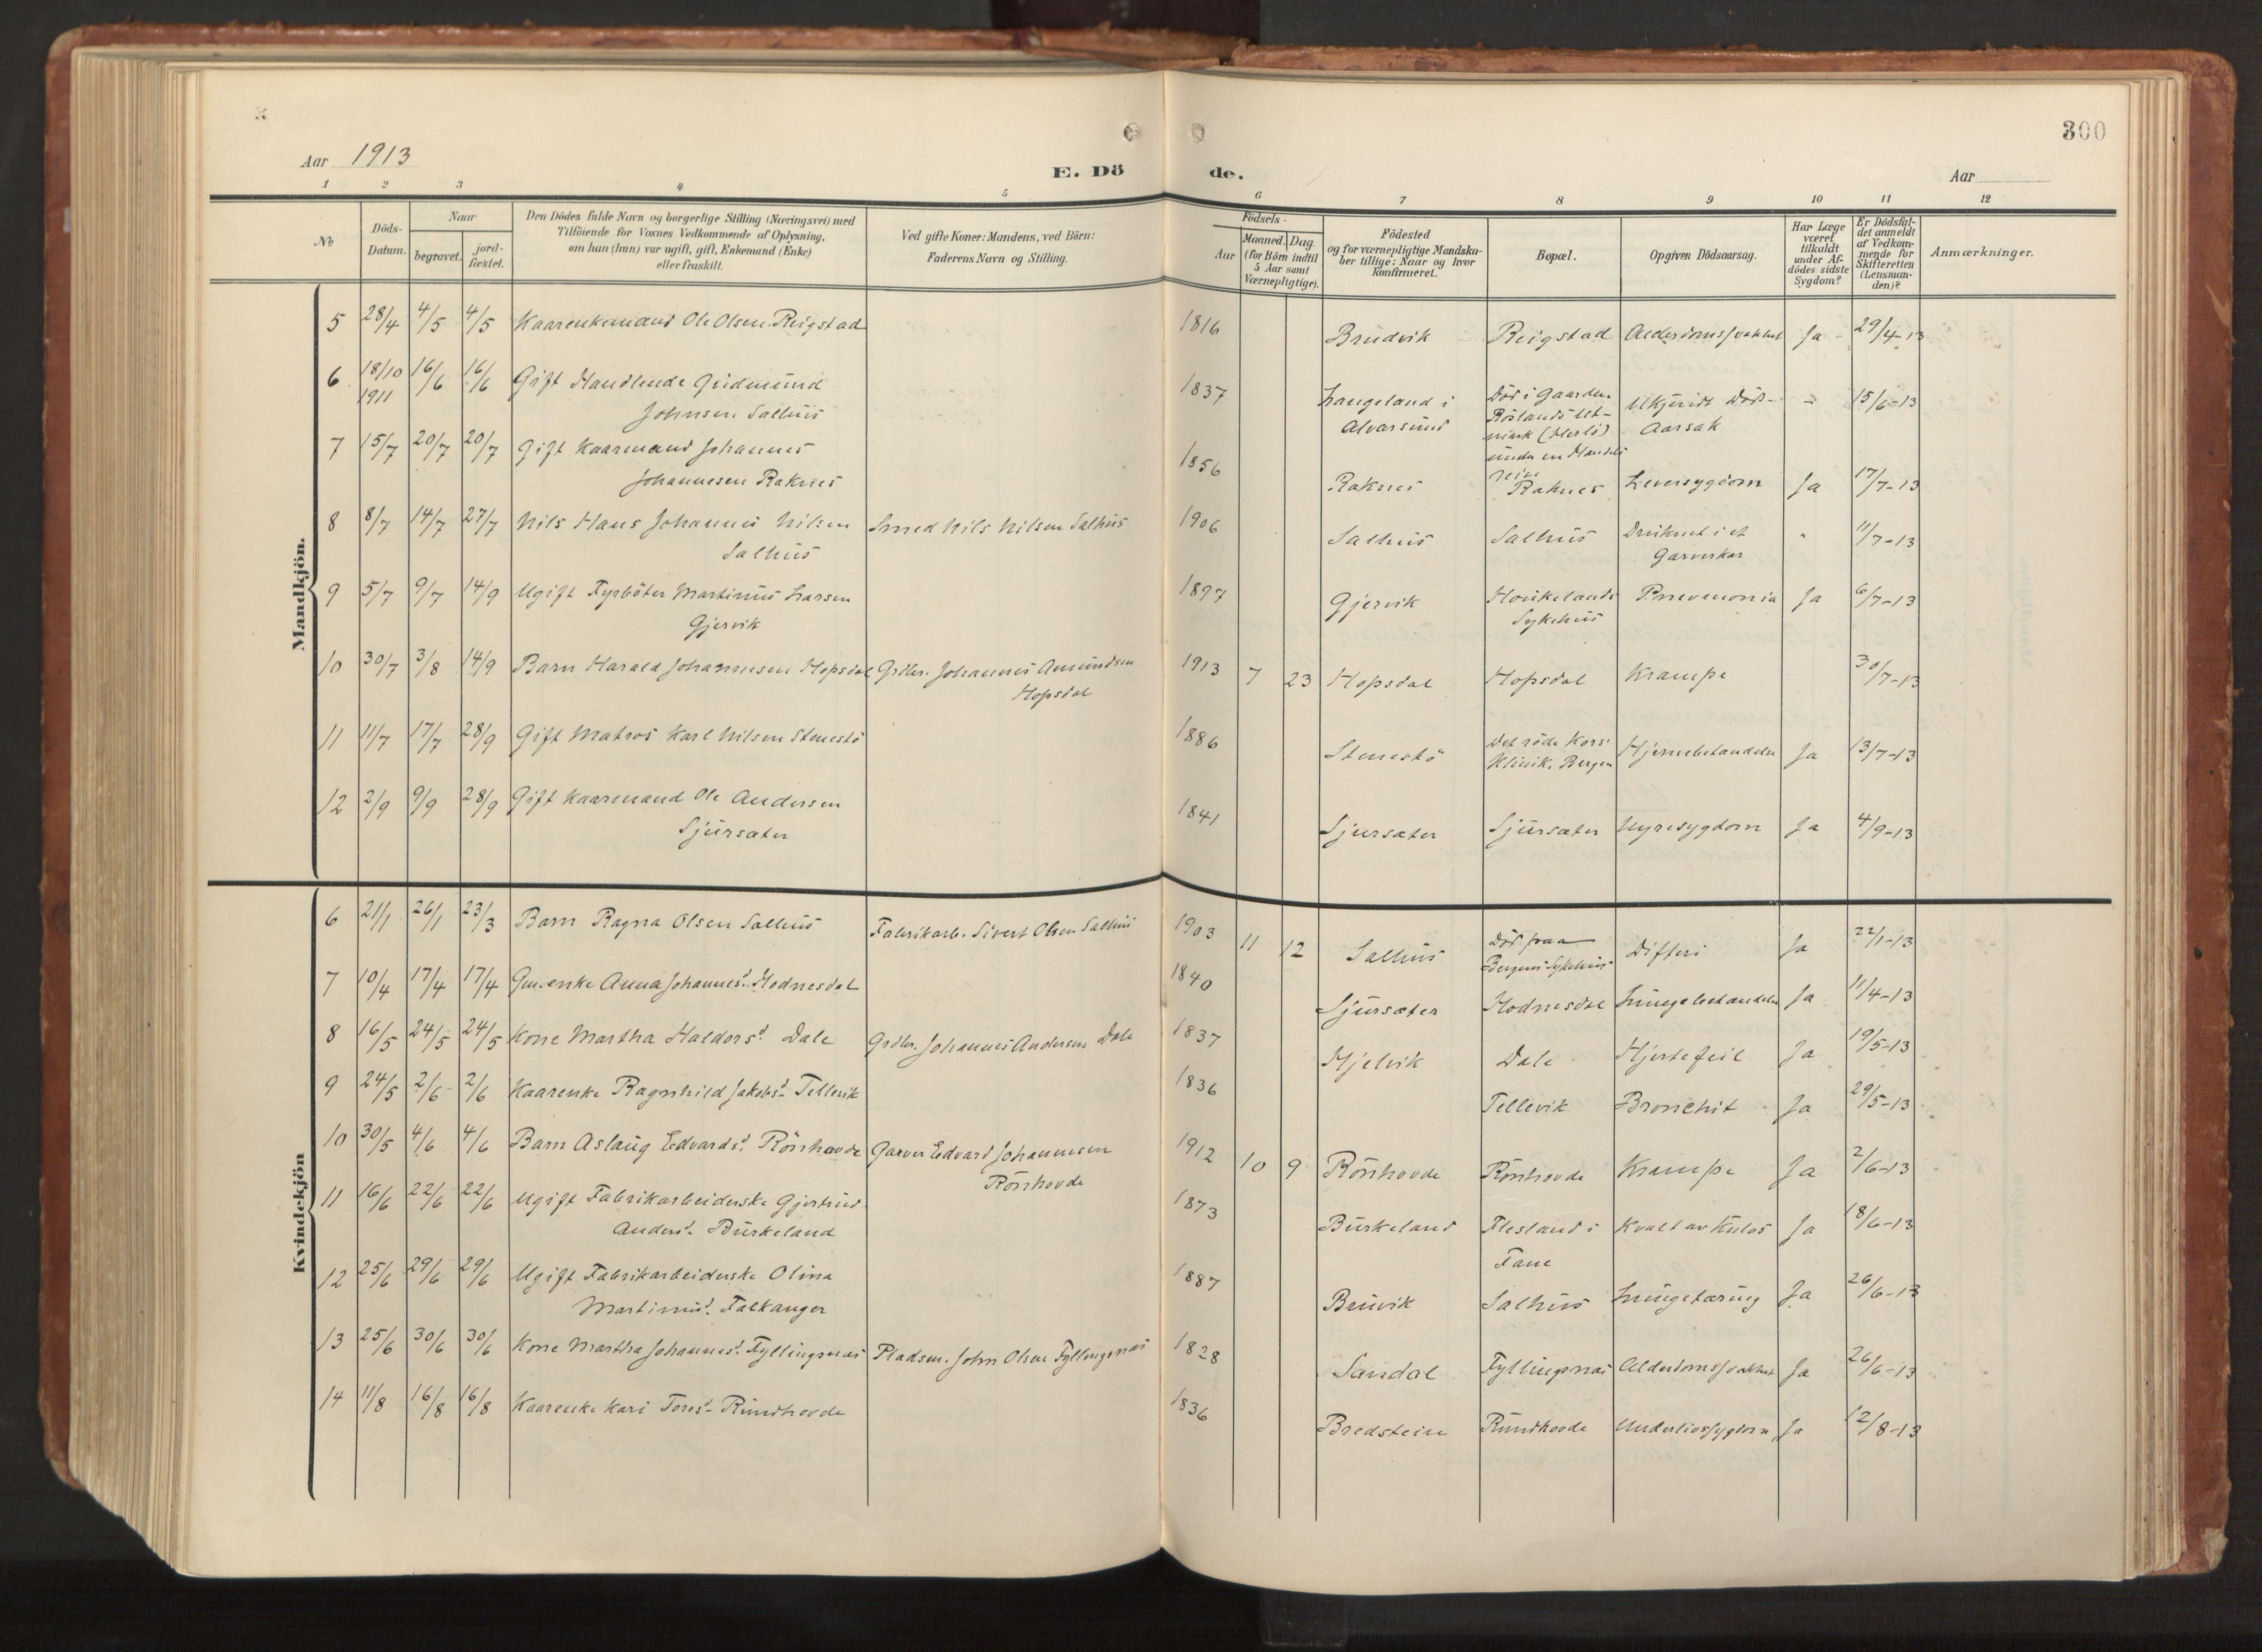 300
Aar 1913
E. Dö
de.
Aar
1 2 3 4 5 6 7 8 9 10 11 12
No
Döds-Datum.
Naar
begravet.
jord-fæstet.
Den Dödes fulde Navn og borgerlige Stilling (Næringsvei) med
Tilföiende for Voxnes Vedkommende af Oplysning,
om han (hun) var ugift, gift, Enkemand (Enke)
eller fraskilt.
Ved gifte Koner: Mandens, ved Börn:
Faderens Navn og Stilling.
Födsels-
Aar
Maaned. Dag.
(for Börn indtil
5 Aar samt
Værnepligtige).
Födested
og for værnepligtige Mandska-
ber tillige: Naar og hvor
konfirmeret.
Bopæl.
Opgiven Dödsaarsag.
Har Læge
været
tilkaldt
under Af-
dödes sidste
Sygdom?
Er Dödsfal-
det anmeldt
af Vedkom-
mende for
Skifteretten
(Lensman-
den)?
Anmærkninger.
Mandkjön.
5 28/4 4/5 4/5 Kaarenkemand Ole Olsen Reigstad 1816 Brudvik Reigstad Alderdomssvakhet Ja 29/4-13
6 18/10 1911 16/6 16/6 Gift Handlende Gudmund
Johnsen Salhus 1837 Langeland i
Alvarsund Död i Gaarden
Röslands Ut-
mark (Herlö)
under en Handels
reise Ukjendt Döds-
Aarsak - 15/6-13
7 15/7 20/7 20/7 Gift Kaarmand Johannes
Johannesen Raknes 1856 Raknes Raknes Leversygdom Ja 17/7-13
8 8/7 14/7 27/7 Nils Hans Johannes Nilsen
Salhus Smed Nils Nilsen Salhus 1906 Salhus Salhus Druknet i et
Garverkar " 11/7-13
9 5/7 9/7 14/9 Ugift Fyrböter Martinus Larsen
Gjervik 1897 Gjervik Houkelands
Sykehus Pnevmonia Ja 6/7-13
10 30/7 3/8 14/9 Barn Harald Johannesen Hopsdal Grdbr. Johannes Amundsen
Hopsdal 1913 7 23 Hopsdal Hopsdal Krampe 30/7-13
11 11/7 17/7 28/9 Gift Matros Karl Nilsen Stenestö 1886 Stenestö Det röde Kors'
Klinik, Bergen Hjernebetændelse Ja 13/7-13
12 2/9 9/9 28/9 Gift Kaarmand Ole Andersen
Sjursæter 1841 Sjursæter Sjursæter Nyresygdom Ja 4/9-13
Kvindekjön
6 21/1 26/1 23/3 Barn Ragna Olsen Salhus Fabrikarb. Sivert Olsen Salhus 1903 11 12 Salhus Död paa
Bergens Sykehus Difteri Ja 22/1-13
7 10/4 17/4 17/4 Gm.enke Anna Johannesd. Hodnesdal 1840 Sjursæter Hodnesdal Lungebetændelse Ja 11/4-13
8 16/5 24/5 24/5 Kone Martha Haldorsd. Dale Grdbr. Johannes Andersen Dale 1837 Hjelvik Dale Hjertefeil Ja 19/5-13
9 24/5 2/6 2/6 Kaarenke Ragnhild Jakobsd. Tellevik 1836 Tellevik Bronchit Ja 29/5-13
10 30/5 4/6 4/6 Barn Aslaug Edvardsd. Rönhovde Garver Edvard Johannesen
Rönhovde 1912 10 9 Rönhovde Rönhovde Krampe Ja 2/6-13
11 16/6 22/6 22/6 Ugift Fabrikarbeiderske Gjertrud
Andersd. Burkeland 1873 Burkeland Flesland i
Fane Kvalt av Kulos Ja 18/6-13
12 25/6 29/6 29/6 Ugift Fabrikarbeiderske Olina
Martinusd. Falkanger 1887 Bruvik Salhus Lungetæring Ja 26/6-13
13 25/6 30/6 30/6 Kone Martha Johannesd. Fyllingsnæs Pladsm. John Olsen Fyllingsnæs 1828 Sandal Fyllingsnæs Alderdomssvakhet Ja 26/6-13
14 11/8 16/8 16/8 Kaarenke Kari Toresd. Rundhovde 1836 Bredstein Rundhovde Underlivssygdom Ja 12/8-13